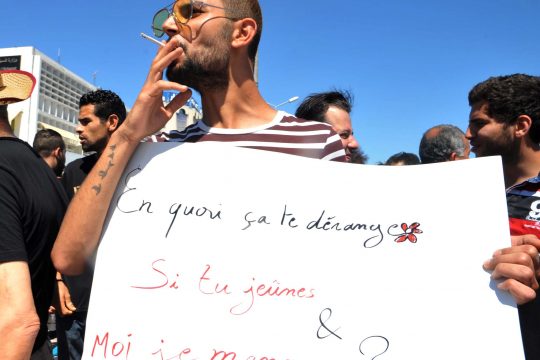 En quoi ça te dérange
Si tu jeûnes
&
Moi je mange ?